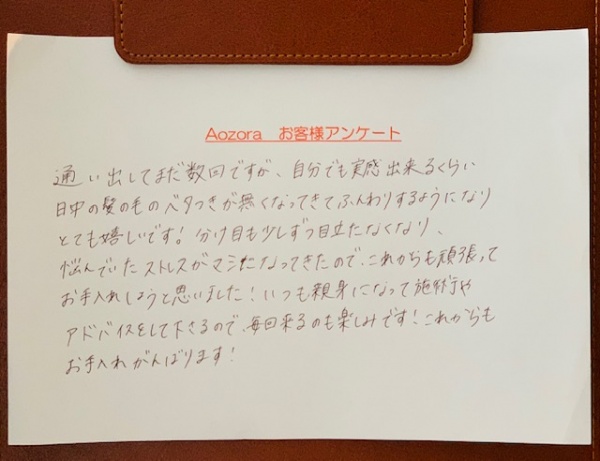 Aozora お客様アンケート
通い出してまだ数回ですが、自分でも実感出来るくらい
日中の髪の毛のベタつきが無くなってきてふんわりするようになり
とても嬉しいです！分け目も少しずつ目立たなくなり、
悩んでいたストレスがマシになってきたので、これからも頑張って
お手入れしようと思いました！いつも親身になって施術や
アドバイスをして下さるので、毎回来るのも楽しみです！これからも
お手入れがんばります！